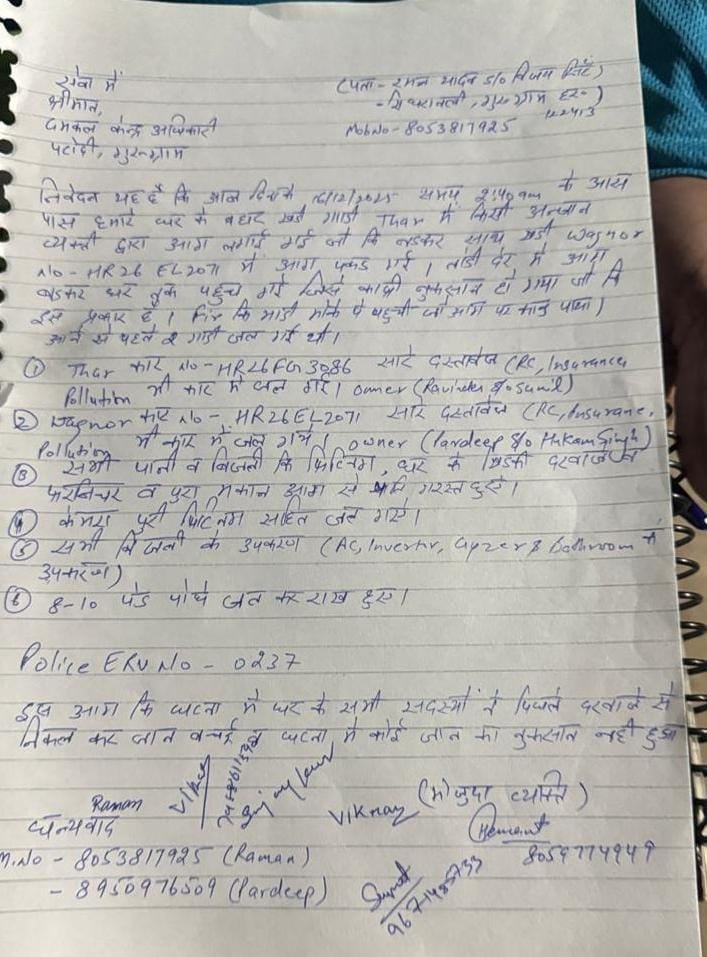 सेवा में
श्रीमान,
दमकल केन्द्र अधिकारी
पटौदी, गुरुग्राम
(पता - रमन यादव S/o विजय सिंह)
- सिधरावली, गुरुग्राम हर०)
122413
Mob No - 8053817925
निवेदन यह है कि आज दिनांक 16/12/2025 समय 2:40 am के आस
पास हमारे घर के बहार खड़ी गाडी Thar में किसी अनजान
व्यक्ती द्वारा आग लगाई गई जो कि बडकर साथ खडी Wagnor
No - HR26 EL2071 में आग पकड गई। देर में आग
बडकर घर तक पहुच गई जिसे काफी नुकसान हो गया जो कि
इस प्रकार है। Fire कि गाडी मौके पे पहुची जो आग पर काबू पाया।
आने से पहले 2 गाडी जल गई थी।
① Thar कार No - HR26FG3086 सारे दस्तावेज (RC, Insurance
Pollution भी कार में जल गऐ। owner (Ravinder S/o Sunil)
② Wagnor कार No - HR26EL2071 सारे दस्तावेज (RC, Insurance,
Pollution भी कार में जल गये। owner (Pardeep S/o Hukam Singh)
③ सभी पानी व बिजली कि फिटिंग, घर के खिडकी दरवाजे व
फरनिचर व पुरा मकान आग से गरस्त हुए।
④ केमरा पुरी फिटिंग सहित जल गए।
⑤ सभी बिजली के उपकरण (AC, Invertor, Gyzer & Bathroom के
उपकरण)
⑥ 8-10 पेड पोधे जल कर राख हुए।
Police ERV No - 0237
इस आग कि घटना में घर के सभी सदस्यों ने पिछले दरवाजे से
निकल कर जान बचाई व घटना में कोई जान का नुकसान नही हुआ
Raman
धन्यवाद
M.No - 8053817925 (Raman)
- 8950976509 (Pardeep)
Vikas
(मौजुदा व्यक्ति)
Vikram
Hemant
8059774949
Sumit
9671485733